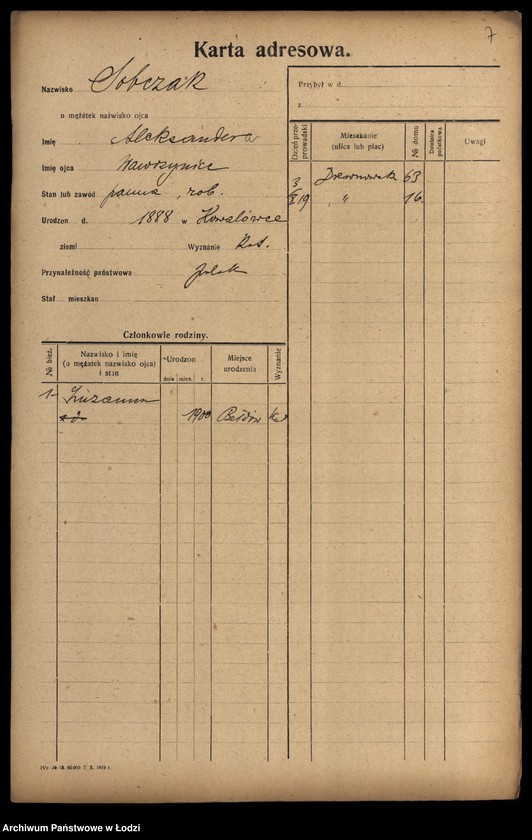 7
Karta adresowa.
Nazwisko Sobczak
u mężatek nazwisko ojca
Imię Aleksandera
Imię ojca Wawrzyniec
Stan lub zawód panna, rob.
Urodzon d. 1888 w Kowalówce
ziemi Wyznanie Kat.
Przynależność państwowa polak
Stał mieszkan
Przybył w d.
z
Dzień przeprowadzki
Mieszkanie
(ulica lub plac)
№ domu
Dzielnica podatkowa
Uwagi
3 63
X 19 " 16.
Członkowie rodziny.
№ bież.
Nazwisko i imię
(u mężatek nazwisko ojca)
i stan
Urodzon
dnia mies. r.
Miejsce
urodzenia
Wyznanie
1- Zuzanna
1900 Bełdów Kat
Archiwum Państwowe w Łodzi